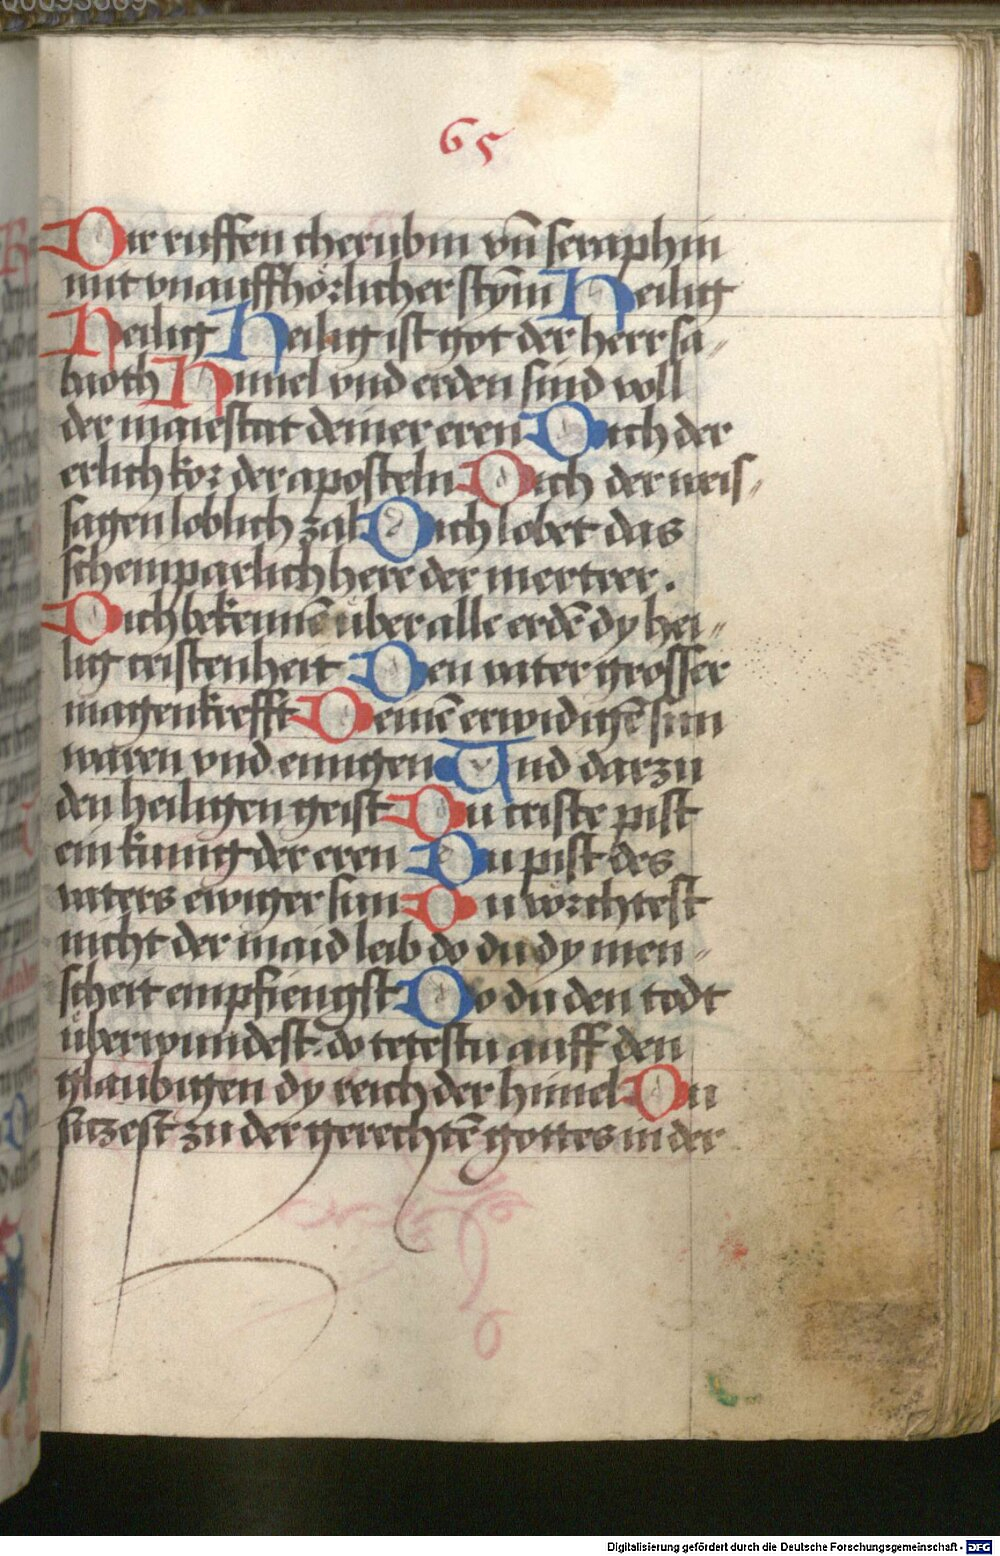 65
Dir ruffen cherubin vn̄ seraphin
mit vnauffhörlicher stym̄ Heilig
Heilig Heilig ist got der herr sa„
baoth Himel vnd erden sind voll
der maiestat deiner eren Dich der
erlich kor der aposteln Dich der weis„
sagen loblich zal Dich lobet das
schemparlich here der mertrer.
Dich bekennē̄ über alle erdē dy hei„
lig cristenheit Den vater grosser
magenkrefft Deinē erwidigē sun
waren vnd einigen Und darzu
den heiligen geist Du criste pist
ein kunig der eren Du pist des
vaters ewiger sun Du vorchtest
nicht der maid leib do du dy men„
scheit empfiengst Do du den todt
überwundest. do tetestu auff den
glaubigen dy reich der himel Du
siczest zu der gerechtē gottes in der
Digitalisierung gefördert durch die Deutsche Forschungsgemeinschaft - DFG